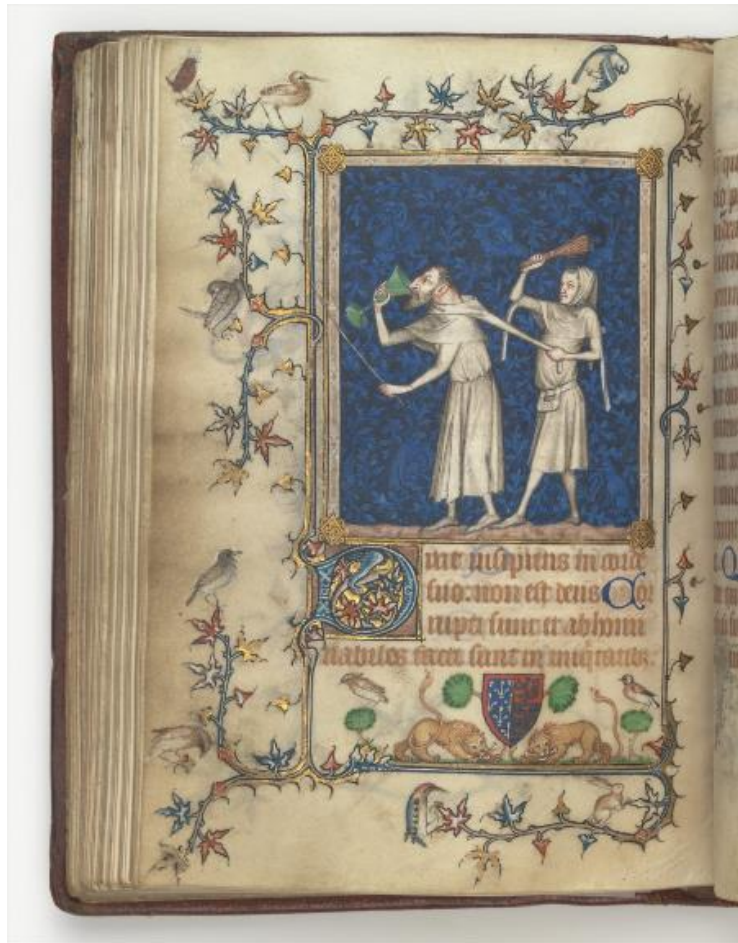 Dixit insipiens in corde
suo: non est deus Cor
rupti sunt et abhomi
nabiles facti sunt in